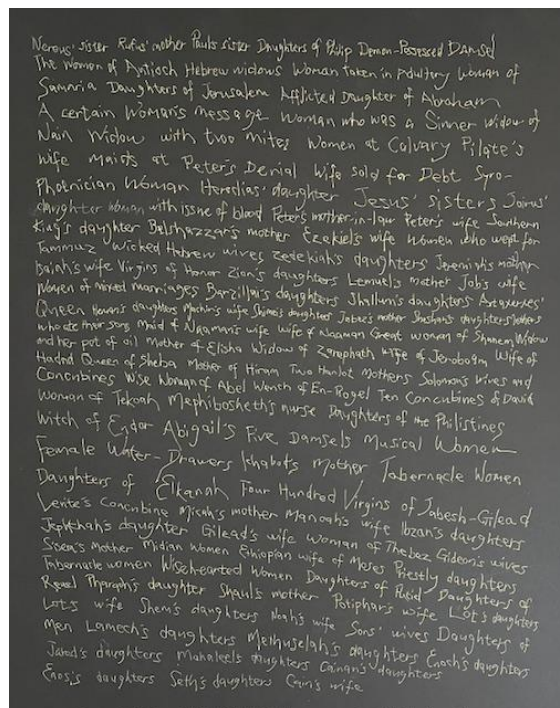 Nereus' sister Rufus' mother Pauls sister Daughters of Philip Demon-Possessed DAMSEL
The Women of Antioch Hebrew widows Woman taken in Adultery Woman of
Samaria Daughters of Jerusalem Afflicted Daughter of Abraham
A certain Woman's message Woman who was a Sinner Widow of
Nain Widow with two mites Women at Calvary Pilate's
Wife Maids at Peter's Denial Wife sold for Debt Syro-
Phoenician Woman Herodias' daughter Jesus' sisters Jairus'
daughter Woman with issue of blood Peter's mother-in-law Peter's wife Southern
King's daughter Belshazzar's mother Ezekiel's wife Women who wept for
Tammuz Wicked Hebrew wives Zedekiah's daughters Jeremiah's mother
Isaiah's wife Virgins of Honor Zion's daughters Lemuel's mother Job's wife
Women of mixed marriages Barzillai's daughters Shallum's daughters Artaxerxes'
Queen Heman's daughters Machir's wife Shimei's daughters Jabez's mother Sheshan's daughters Mothers
who ate their sons Maid of Naaman's wife Wife of Naaman Great woman of Shunem Widow
and her pot of oil Mother of Elisha Widow of Zarephath Wife of Jeroboam Wife of
Hadad Queen of Sheba Mother of Hiram Two Harlot Mothers Solomon's wives and
Concubines Wise Woman of Abel Wench of En-Rogel Ten Concubines of David
Woman of Tekoah Mephibosheth's nurse Daughters of the Philistines
Witch of Endor Abigail's Five Damsels Musical Women
Female Water-Drawers Ichabod's Mother Tabernacle Women
Daughters of Elkanah Four Hundred Virgins of Jabesh-Gilead
Levite's Concubine Micah's mother Manoah's wife Ibzan's daughters
Jephthah's daughter Gilead's wife Woman of Thebez Gideon's wives
Sisera's Mother Midian Women Ethiopian wife of Moses Priestly daughters
Tabernacle women Wisehearted Women Daughters of Putiel Daughters of
Reuel Pharaoh's daughter Shaul's mother Potiphar's wife Lot's daughters
Lot's wife Shem's daughters Noah's wife Sons' wives Daughters of
Men Lamech's daughters Methuselah's daughters Enoch's daughters
Jared's daughters Mahaleel's daughters Cainan's daughters
Enos's daughters Seth's daughters Cain's wife